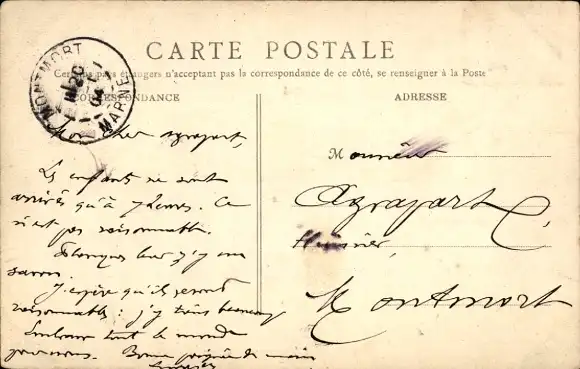 CARTE POSTALE
Certains pays étrangers n'acceptant pas la correspondance de ce côté, se renseigner à la Poste
CORRESPONDANCE
ADRESSE
MONTMORT
20
04
MARNE
Mon cher Agrapart,
Les enfants ne sont
arrivés qu'à 7 heures. Ce
n'est pas raisonnable.
savon.
J'espère qu'ils seront
raisonnables : j'y tiens beaucoup
Embrasse tout le monde
pour nous. Bonne poignée de main
Monsieur
Agrapart
Huissier,
Montmort